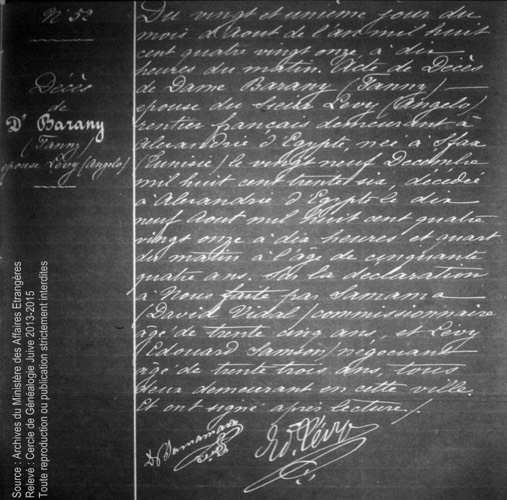 N° 52
Décès
de
De Barany
(Fanny)
epouse Lévy (Angelo)
Du vingt et unième jour du
mois d'Aout de l'an mil huit
cent quatre vingt onze, à dix
heures du matin. Acte de Décès
de Dame Barany (Fanny)
epouse du sieur Lévy (Angelo)
rentier français demeurant à
Alexandrie d'Egypte, née à Sfax
(Tunisie) le vingt neuf Decembre
mil huit cent trente six, décédée
à Alexandrie d'Egypte le dix
neuf Aout mil huit cent quatre
vingt onze à dix heures et quart
du matin à l'âge de cinquante
quatre ans. Sur la declaration
à Nous faite par Samama
(David Vidal) commissionnaire
agé de trente cinq ans et Lévy
(Edouard Samson) négociant
agé de trente trois ans, tous
deux demeurant en cette ville.
Et ont signé après lecture.
Dd Samama
Ed. Lévy
Source : Archives du Ministère des Affaires Etrangères
Relevé : Cercle de Généalogie Juive 2013-2015
Toute reproduction ou publication strictement interdites